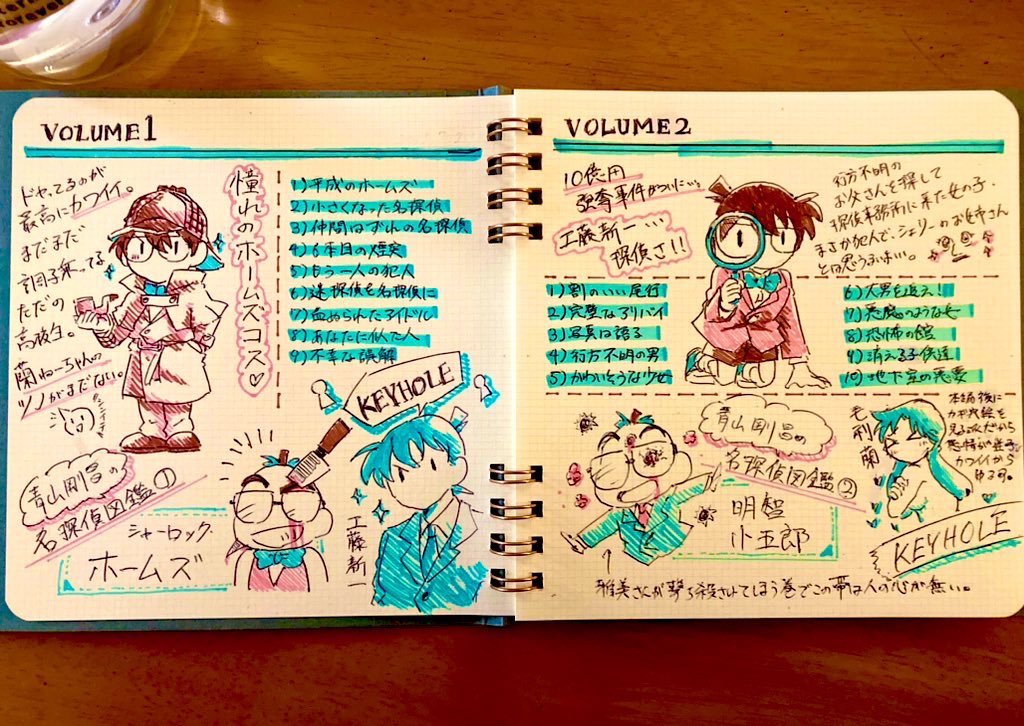 VOLUME1
ドヤってるのが
最高にカワイイ。
まだまだ
調子乗ってる
ただの
高校生。
蘭ねーちゃんの
ツノがまだない。
憧れのホームズコス♡
1) 平成のホームズ
2) 小さくなった名探偵
3) 仲間はずれの名探偵
4) 6本目の煙突
5) もう一人の犯人
6) 迷探偵を名探偵に
7) 血ぬられたアイドル
8) あなたに似た人
9) 不幸な誤解
KEYHOLE
青山剛昌の
名探偵図鑑①
シャーロック
ホームズ
工藤新一
VOLUME2
10億円
強奪事件がついに…
工藤新一…
探偵さ!!
行方不明の
お父さんを探して
探偵事務所に来た女の子。
まさか犯人で、シェリーのお姉さん
と思うまいて。
1) 割のいい尾行
2) 完璧なアリバイ
3) 写真は語る
4) 行方不明の男
5) かわいそうな少女
6) 大男を追え!
7) 悪魔のような女
8) 恐怖の館
9) 消える子供達
10) 地下室の悪夢
青山剛昌の
名探偵図鑑②
明智
小五郎
毛利蘭
本編後に
カワイイから
ゆるす。
KEYHOLE
雅美さんが撃ち殺されてしまう巻でこの帯は人の心が無い。